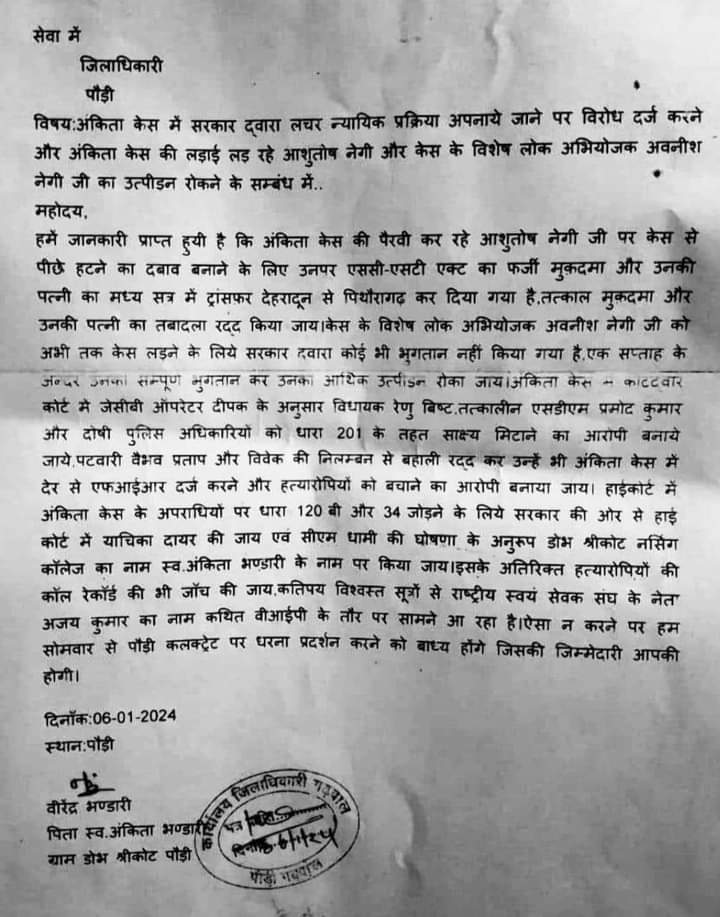 सेवा में
जिलाधिकारी
पौड़ी
विषय:अंकिता केस में सरकार द्वारा लचर न्यायिक प्रक्रिया अपनाये जाने पर विरोध दर्ज करने
और अंकिता केस की लड़ाई लड़ रहे आशुतोष नेगी और केस के विशेष लोक अभियोजक अवनीश
नेगी जी का उत्पीडन रोकने के सम्बंध में..
महोदय,
हमें जानकारी प्राप्त हुयी है कि अंकिता केस की पैरवी कर रहे आशुतोष नेगी जी पर केस से
पीछे हटने का दबाव बनाने के लिए उनपर एससी-एसटी एक्ट का फर्जी मुक़दमा और उनकी
पत्नी का मध्य सत्र में ट्रांसफ़र देहरादून से पिथौरागढ़ कर दिया गया है,तत्काल मुक़दमा और
उनकी पत्नी का तबादला रद्द किया जाय।केस के विशेष लोक अभियोजक अवनीश नेगी जी को
अभी तक केस लड़ने के लिये सरकार दवारा कोई भी भुगतान नहीं किया गया है,एक सप्ताह के
अन्दर उनका सम्पूर्ण भुगतान कर उनका आर्थिक उत्पीडन रोका जाय।अंकिता केस में कोटद्वार
कोर्ट में जेसीबी ऑपरेटर दीपक के अनुसार विधायक रेणु बिष्ट,तत्कालीन एसडीएम प्रमोद कुमार
और दोषी पुलिस अधिकारियों को धारा 201 के तहत साक्ष्य मिटाने का आरोपी बनाये
जाये,पटवारी वैभव प्रताप और विवेक की निलम्बन से बहाली रद्द कर उन्हें भी अंकिता केस में
देर से एफआईआर दर्ज करने और हत्यारोपियों को बचाने का आरोपी बनाया जाय। हाईकोर्ट में
अंकिता केस के अपराधियों पर धारा 120 बी और 34 जोड़ने के लिये सरकार की ओर से हाई
कोर्ट में याचिका दायर की जाय एवं सीएम धामी की घोषणा के अनुरूप डोभ श्रीकोट नर्सिंग
कॉलेज का नाम स्व.अंकिता भण्डारी के नाम पर किया जाय।इसके अतिरिक्त हत्यारोपियों की
कॉल रेकॉर्ड की भी जाँच की जाय,कतिपय विश्वस्त सूत्रों से राष्ट्रीय स्वयं सेवक संघ के नेता
अजय कुमार का नाम कथित वीआईपी के तौर पर सामने आ रहा है।ऐसा न करने पर हम
सोमवार से पौड़ी कलक्ट्रेट पर धरना प्रदर्शन करने को बाध्य होंगे जिसकी जिम्मेदारी आपकी
होगी।
दिनाँक:06-01-2024
स्थान:पौड़ी
वीरेंद्र भण्डारी
पिता स्व.अंकिता भण्डारी
ग्राम डोभ श्रीकोट पौड़ी
कार्यालय जिलाधिकारी गढ़वाल
पत्र
दिनांक 6/1/24
पौड़ी गढ़वाल